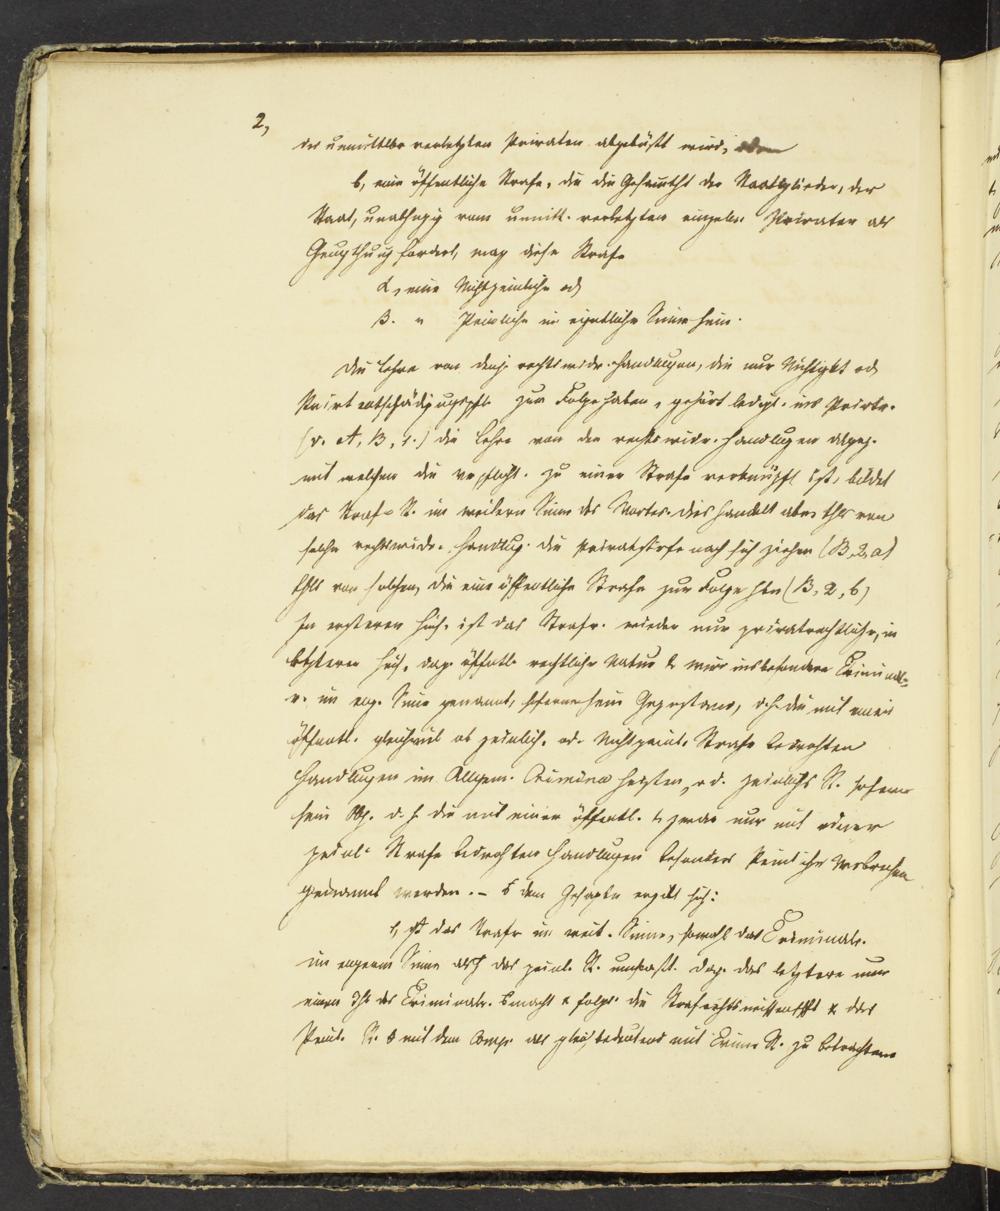 2,
des unmittelbar verletzten Privaten abgebüßt wird; oder
b, eine öffentliche Strafe, die die Gesammtht der Staatsglieder, der
Staat, unabhgig vom unmitt. verletzten einzeln. Privaten als
Genugthuung fordert, mag diese Strafe
α, eine Nichtpeinliche od
β. " Peinliche im eigentlichen Sinne sein.
Die Lehre von denj. rechtswidr. Handlungen, die nur Nichtigkt od
Privt entschädigungspfl. zur Folge haben, gehört ledigl. ins Privtr.
(v. A, B, 1.) die Lehre von den rechtswidr. Handlugen dageg.
mit welchen die Verpflicht. zu einer Strafe verknüpft ist, bildet
das Straf-R. im weitern Sinn des Wortes. Dies handelt aber thls von
solchen rechtswidr. Handlug. die privatstrafe nach sich ziehen (B, 2, a)
thls von solchen, die eine öffentliche Strafe zur Folge hbn (B, 2, b)
In ersterer Hins. ist das Strafr. wieder nur privatrechtlicher, in
letzterer Hins. dag. öffentl. rechtlicher Natur & wird insbesondere Criminal-
r. im eng. Sinne genannt, sofern sein Gegenstand, d.h. die mit einer
öffentl. gleichviel ob peinlich. od. Nichtpeinl. Strafe bedrohten
Handlugen im Allgem. Crimina heißen, od. peinliches R. sofern
sein d.h. die mit einer öffentl. & zwar nur mit einer
peinl. Strafe bedrohten Handlugen besonders Peinliche Verbrechen
genannt werden. – dem Gesagten ergibt sich:
1, das Strafr im weit. Sinne, sowohl das Criminalr.
im engern Sinne als das peinl. R. umfasst. dag. das letztere nur
einen Thl des Criminalr. & folgl. die Strafrechtswissenschft & das
Peinl. R. mit dem als gleichbedeutend mit Crimin R. zu betrachten